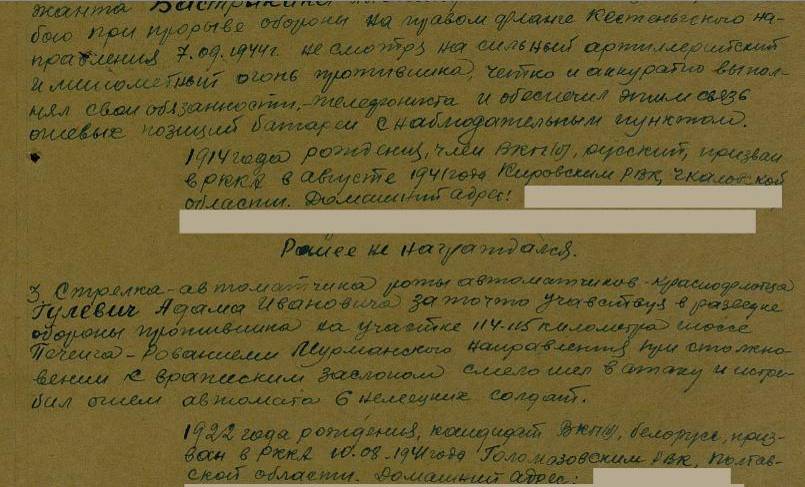 жанта Вастрикина
бою при прорыве обороны на правом фланге Кестеньгского на-
правления 7.09.1944г. не смотря на сильный артиллерийский
и минометный огонь противника, четко и аккуратно выпол-
нял свои обязанности, - телефониста и обеспечил этим связь
огневых позиций батареи с наблюдательным пунктом.
1914 года рождения, член ВКП(б), русский, призван
в РККА в августе 1941 года Кировским РВК, Чкаловской
области. Домашний адрес:
Ранее не награждался.
3. Стрелка-автоматчика роты автоматчиков - краснофлотца
Гулевич Адама Ивановича за то что участвуя в разведке
обороны противника на участке 114-115 километра шоссе
Печенга - Рованиеми Мурманского направления при столкно-
вении с вражеским заслоном смело шел в атаку и истре-
бил огнем автомата 6 немецких солдат.
1922 года рождения, кандидат ВКП(б), белорусс, приз-
ван в РККА 10.08.1941 года Гельмязовским РВК, Полтав-
ской области. Домашний адрес: